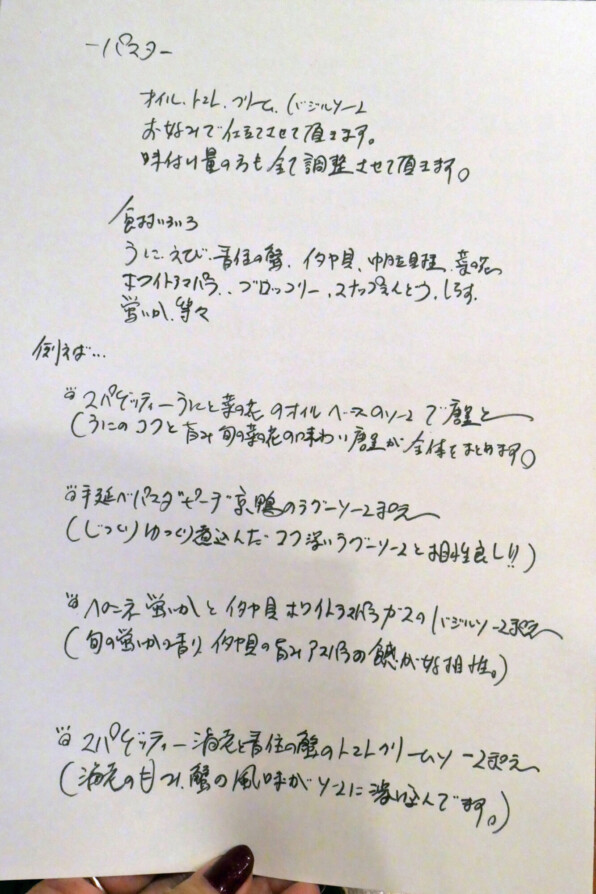 ーパスター
オイル、トマト、クリーム、バジルソース
お好みで仕立てさせて頂きます。
味付け量のろも全て調整させて頂きます。
食材いろいろ
うに、えび、香住の蟹、イタヤ貝、菜の花
ホワイトアスパラ、ブロッコリー、スナップえんどう、しらす、
蛍いか、等々
例えば…
スパゲッティーうにと菜の花のオイルベースのソースで唐墨と
(うにのコクと旨み旬の菜の花の味わい唐墨が全体をまとめます。)
手延べパスタ"ピーチ"京鴨のラグーソース和え
(じっくりゆっくり煮込んだコク深いラグーソースと相性良し!!)
ペンネ蛍いかとイタヤ貝ホワイトアスパラガスのバジルソース和え
(旬の蛍いかの香り、イタヤ貝の旨みアスパラの食感が好相性。)
スパゲッティー海老と香住の蟹のトマトクリームソース和え
(海老の甘み、蟹の風味がソースに溶け込んでます。)